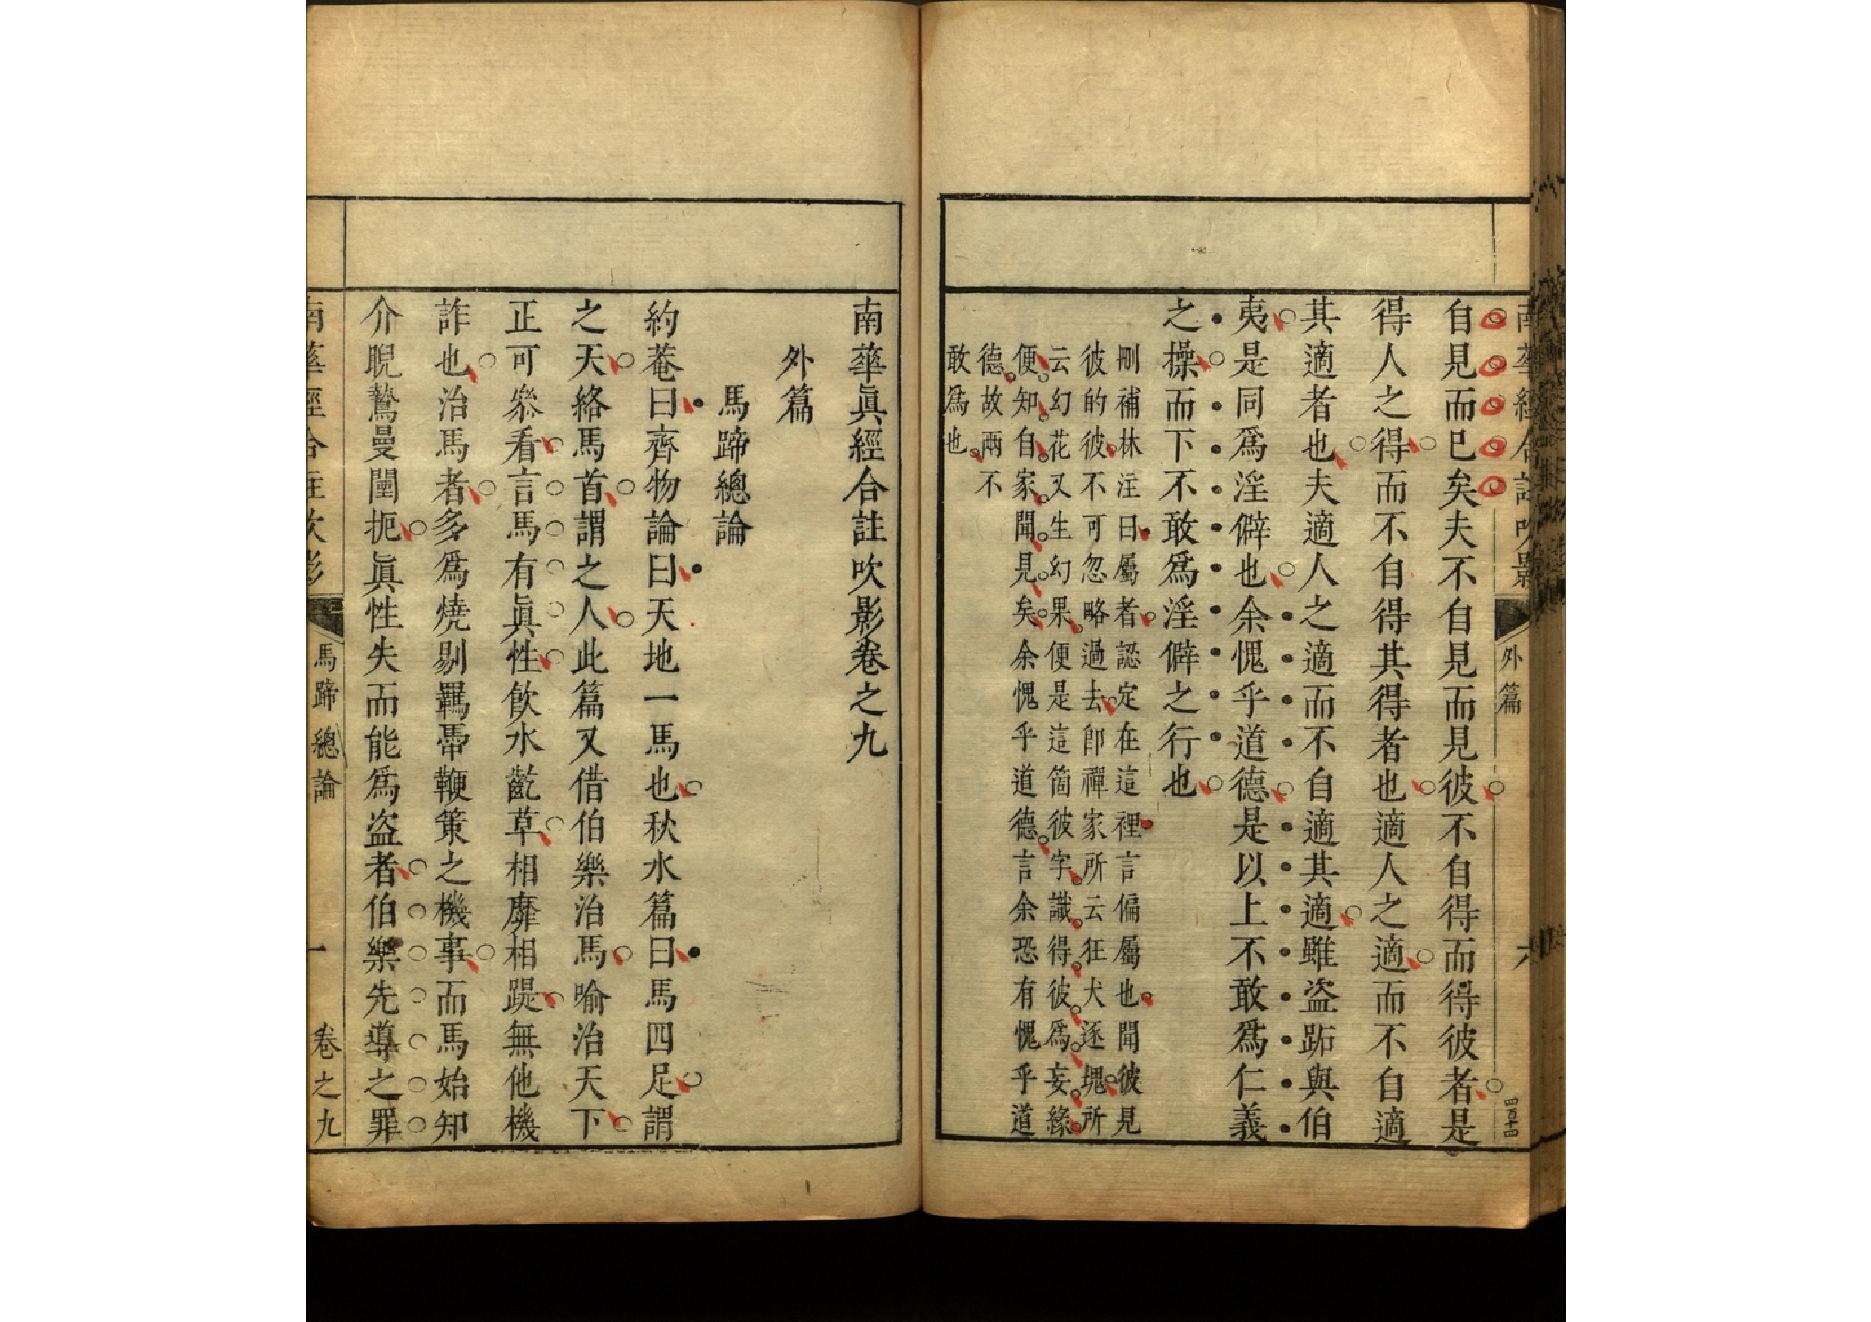 南華經合註吹影
外篇
六
四百十四
自見而巳矣夫不自見而見彼不自得而得彼者是
得人之得而不自得其得者也適人之適而不自適
其適者也夫適人之適而不自適其適雖盗跖與伯
夷是同爲淫僻也余愧乎道德是以上不敢爲仁義
之操而下不敢爲淫僻之行也
刪補林注曰屬者認定在這裡言偏屬也聞彼見
彼的彼不可忽略過去卽禪家所云狂犬逐塊所
云幻花又生幻果便是這箇彼字識得彼爲妄緣
便知自家聞見矣余愧乎道德言余恐有愧乎道
德故兩不
敢爲也
南華眞經合註吹影卷之九
外篇
馬蹄總論
約菴曰齊物論曰天地一馬也秋水篇曰馬四足謂
之天絡馬首謂之人此篇又借伯樂治馬喻治天下
正可叅看言馬有眞性飲水齕草相靡相踶無他機
詐也治馬者多爲燒剔羈馽鞭策之機事而馬始知
介睨鷙曼闉扼眞性失而能爲盗者伯樂先導之罪
南華經合註吹影
馬蹄總論
一
卷之九